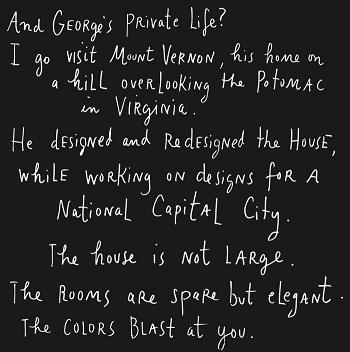 And George's Private Life?
I go visit Mount Vernon, his home on
a hill overlooking the Potomac
in Virginia.
He designed and redesigned the House,
while working on designs for a
National Capital City.
The house is not large.
The rooms are spare but elegant.
The colors blast at you.